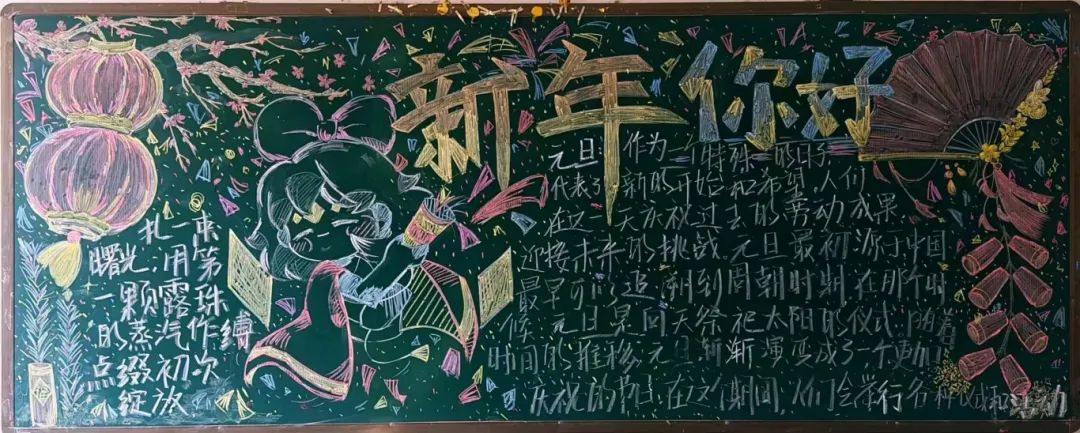 新年你好
扎一束
曙光,用第
一颗露珠
的蒸汽作缚
点缀初次
绽放
元旦,作为一个特殊的日子
代表了新的开始和希望,人们
在这一天庆祝过去的劳动成果
迎接未来的挑战。元旦最初源于中国
最早可以追溯到周朝时期,在那个时
候元旦是向天祭祀太阳的仪式,随着
时间的推移,元旦渐渐演变成了一个更加
庆祝的节日,在这个期间,人们会举行各种仪式和活动